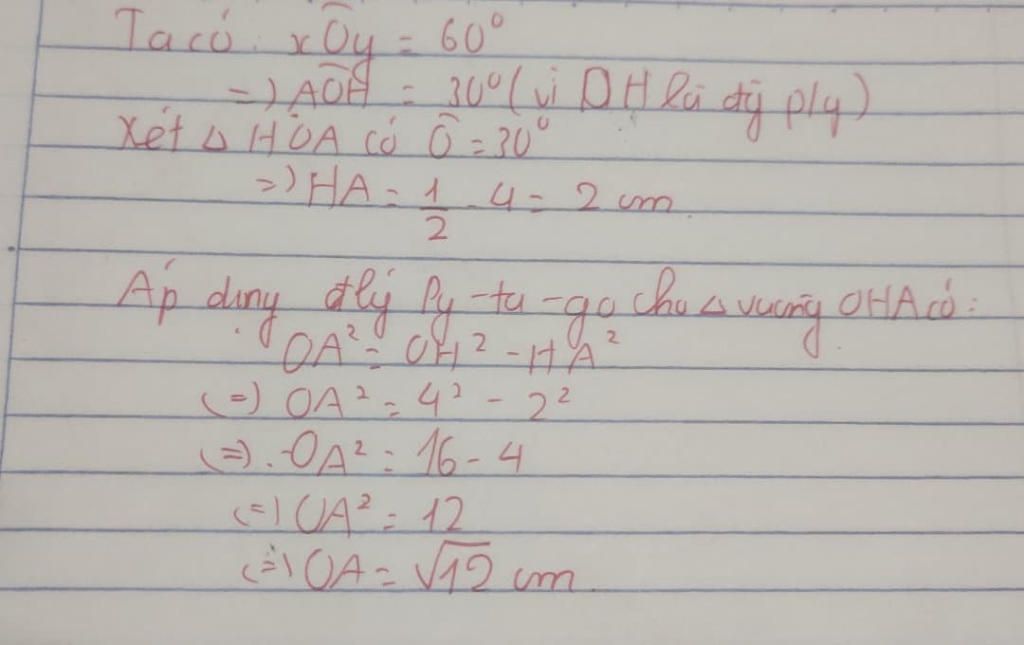 Ta có: xÔy = 60°
=) AÔH = 30° (vì OH là đg p/g)
Xét △ HOA có Ô = 30°
=) HA = 1/2 . 4 = 2 cm
Áp dụng đlý Py-ta-go cho △ vuông OHA có:
OA² = OH² - HA²
(=) OA² = 4² - 2²
(=) OA² = 16 - 4
(=) OA² = 12
(=) OA = √12 cm